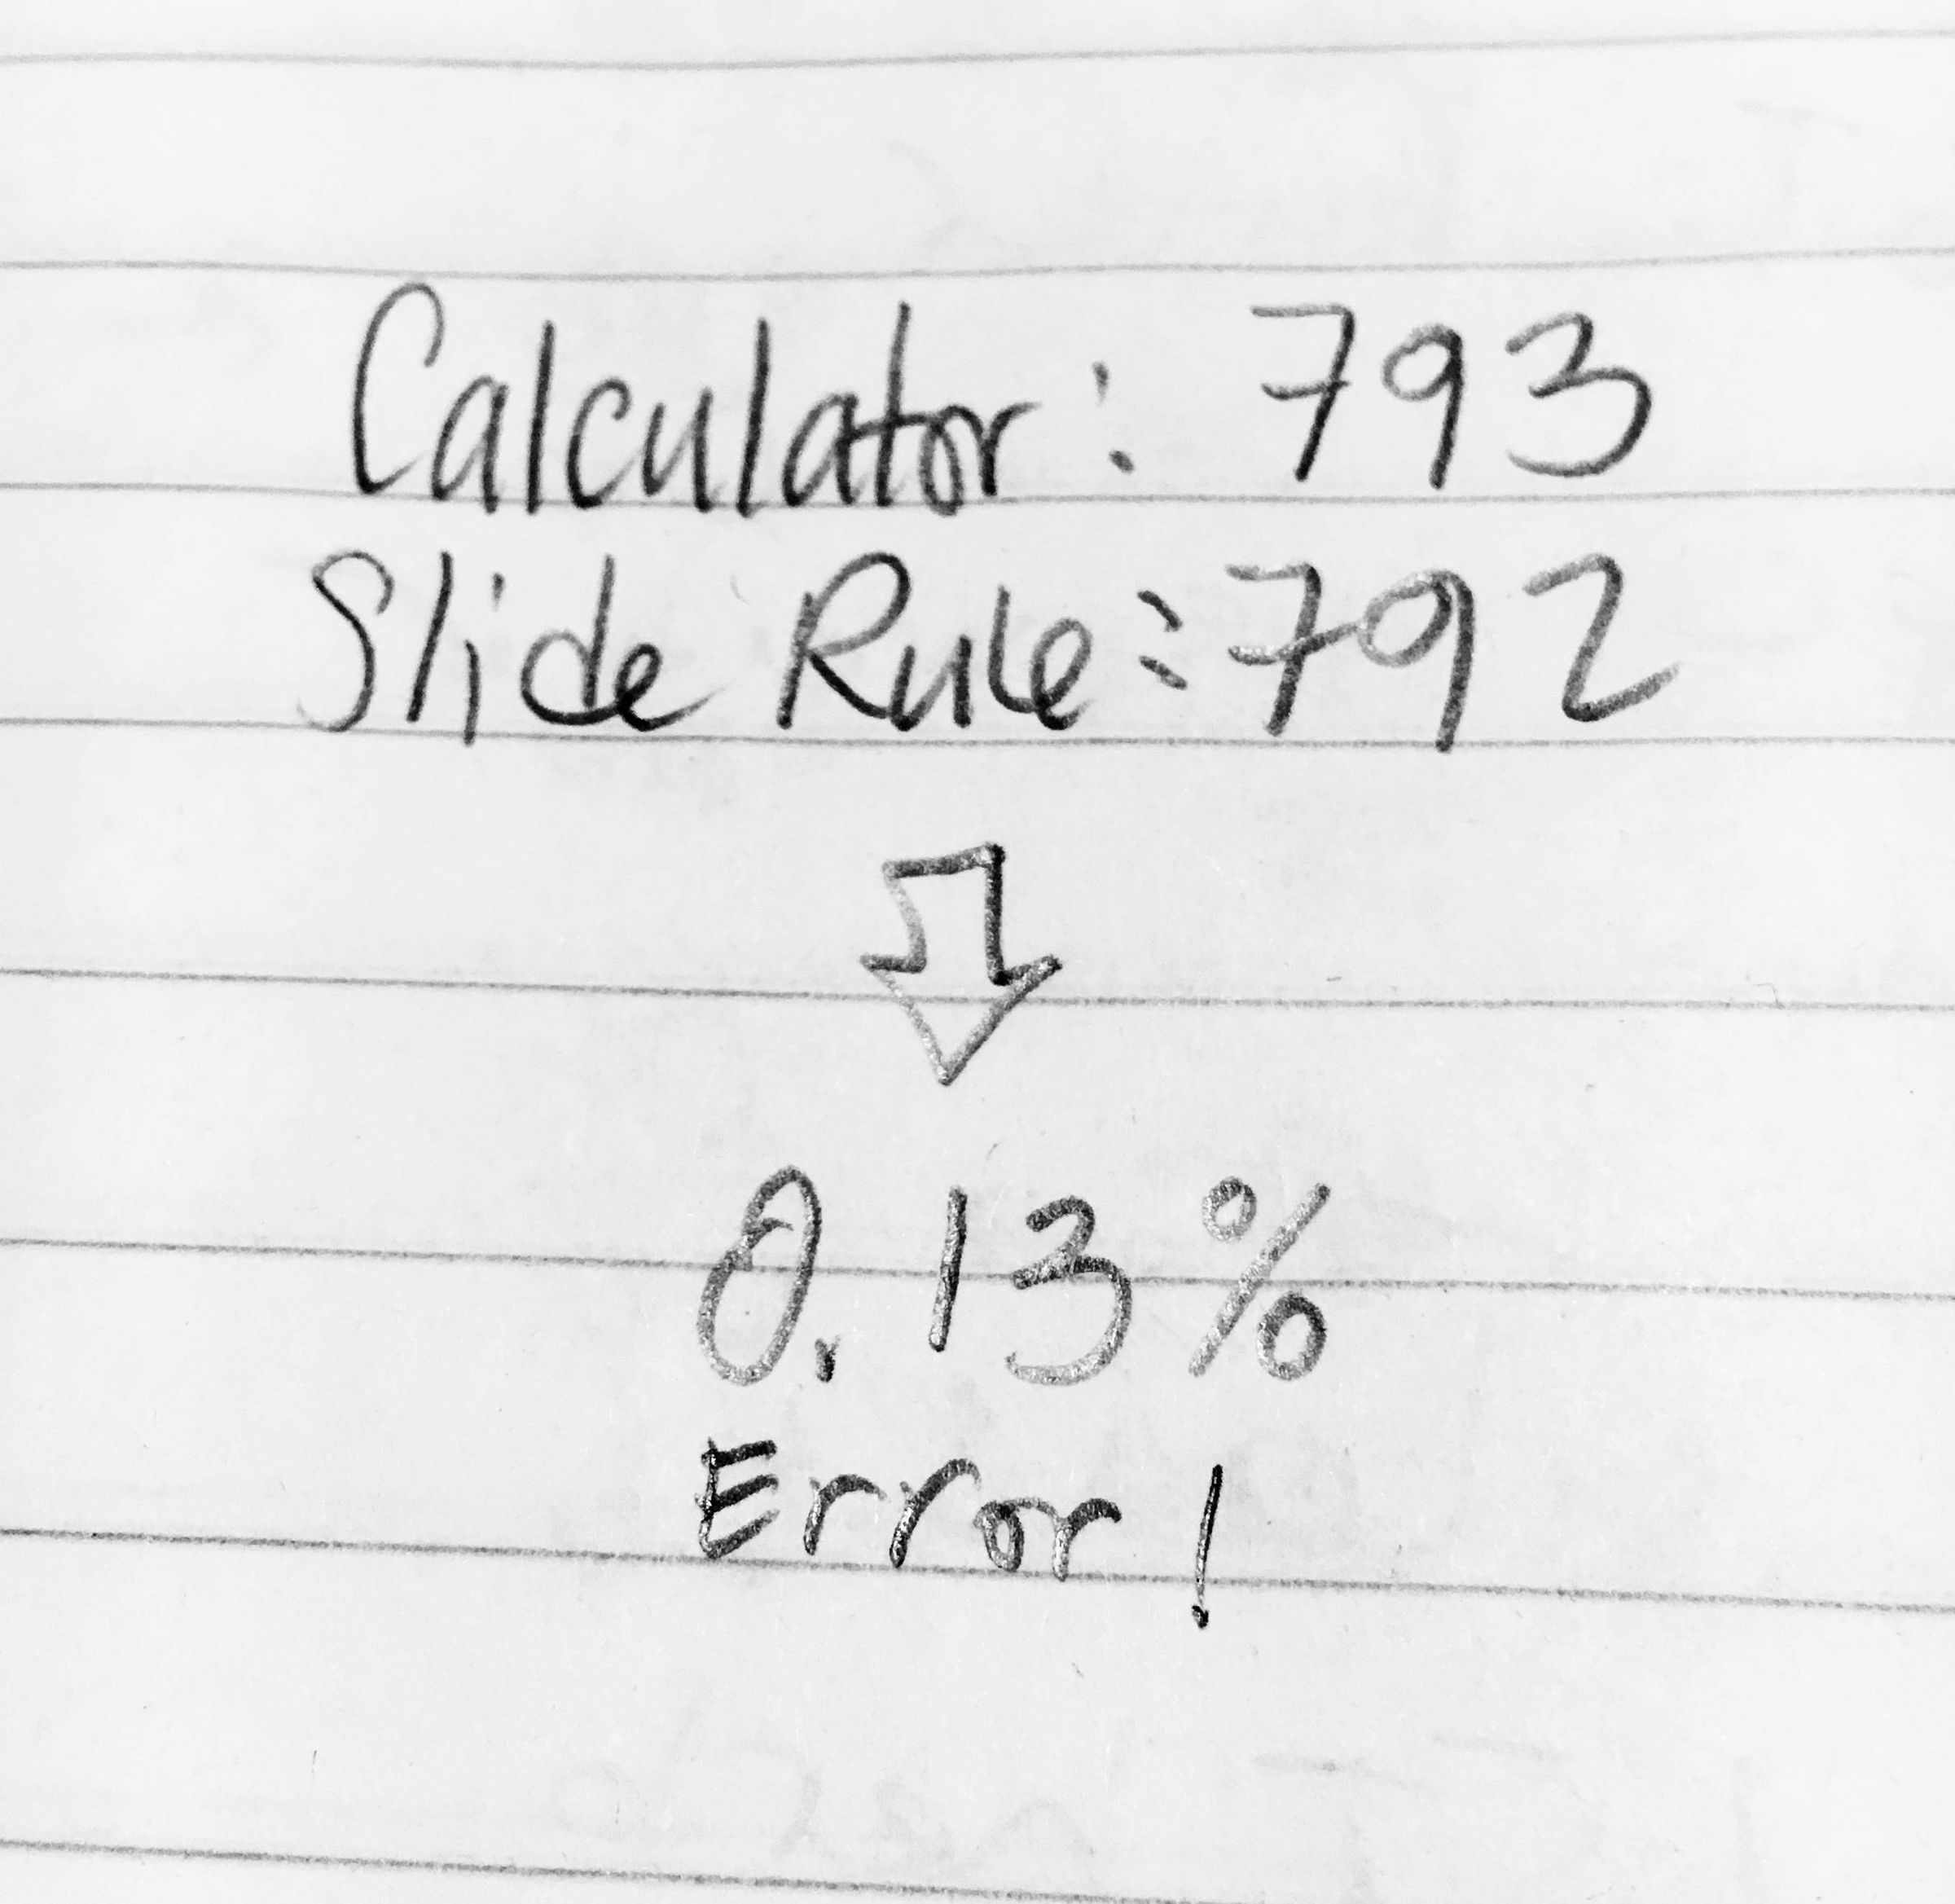 Calculator: 793
Slide Rule: 792
0.13%
Error!